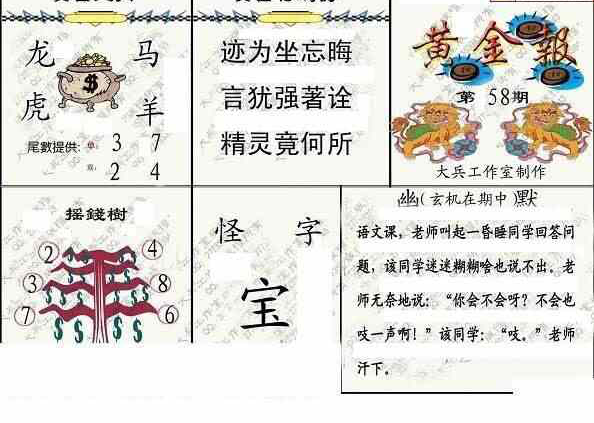 龙 马
虎 羊
尾數提供: 单: 3 7
双: 2 4
迹为坐忘晦
言犹强著诠
精灵竟何所
黄金報
第58期
大兵工作室制作
摇錢樹
2 4
3 8
7 6
怪字
宝
幽(玄机在期中)默
语文课，老师叫起一昏睡同学回答问
题，该同学迷迷糊糊啥也说不出。老
师无奈地说：“你会不会呀？不会也
吱一声啊！”该同学：“吱。”老师
汗下。